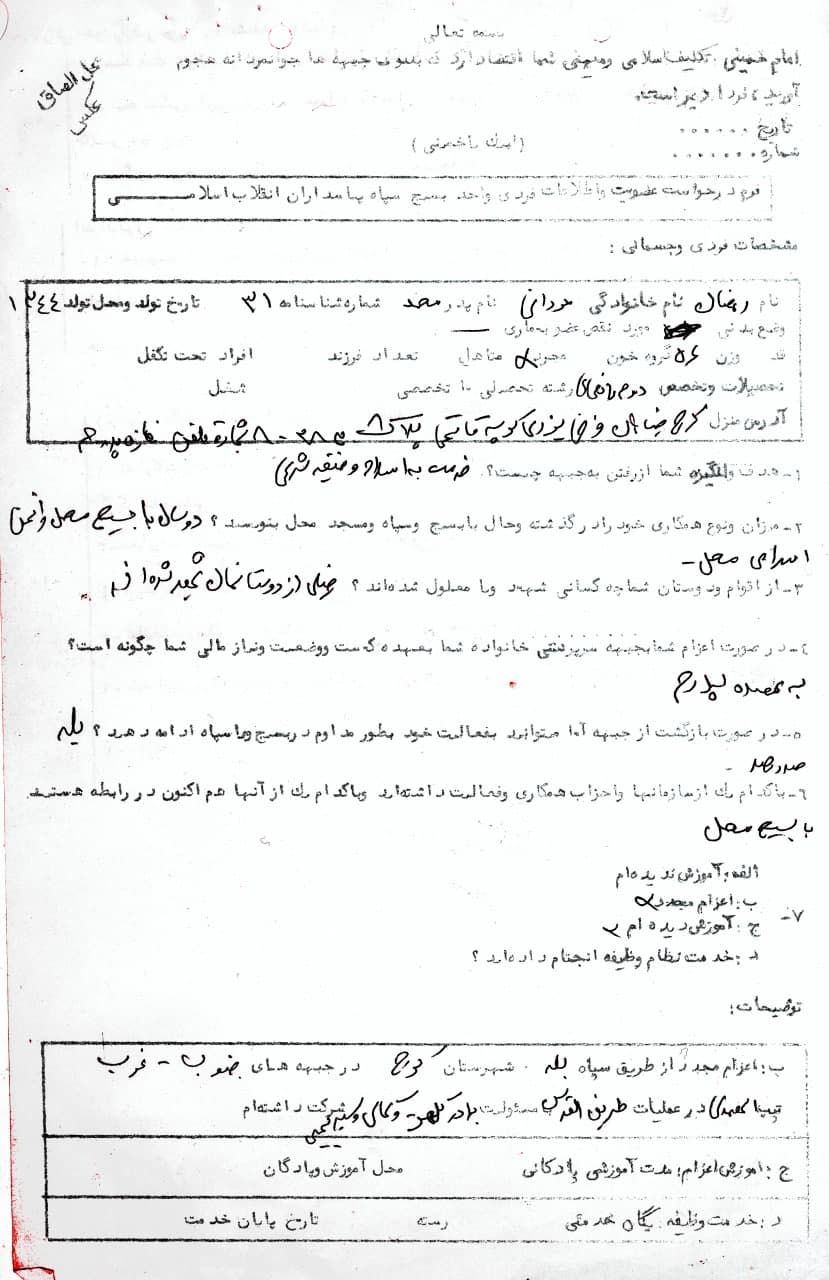 بسمه تعالی
امام خمینی: تکلیف اسلامی ومیهنی شما اقتضا دارد که بسوی جبهه ها جوانمردانه هجوم
آورید، فردا دیر است.
محل الصاق
عکس
تاریخ ......
شماره .......
(امام خمینی)
فرم درخواست عضویت واطلاعات فردی واحد بسیج سپاه پاسداران انقلاب اسلامی
مشخصات فردی وجسمانی :
نام رمضان نام خانوادگی مردانی نام پدر محمد شماره شناسنامه ۳۱ تاریخ تولد ومحل تولد ۱۳۴۴
وضع بدنی مورد نقص عضو بیماری —
قد وزن ۵۶ گروه خون مجرد متاهل تعداد فرزند افراد تحت تکفل
تحصیلات وتخصص دوم راهنمائی رشته تحصیلی - تخصصی شغل
آدرس منزل کرج خیابان کوچه پلاک شماره تلفن مغازه پدرم
۱- هدف وانگیزه شما ازرفتن به جبهه چیست؟. خدمت به اسلام وظیفه شرعی
۲- میزان ونوع همکاری خود رادر گذشته وحال بابسیج وسپاه ومسجد محل بنویسید ؟ دو سال با بسیج محل وانجمن
اسلامی محل -
۳- از اقوام ودوستان شماچه کسانی شهید ویا معلول شده اند ؟ خیلی از دوستانمان شهید شده اند
٤- در صورت اعزام شمابجبهه سرپرستی خانواده شما بعهده کیست ووضعیت ونیاز مالی شما چگونه است؟
به عهده پدرم
۵- در صورت بازگشت از جبهه آیا میتوانید بفعالیت خود بطور مداوم دربسیج ویاسپاه ادامه دهید ؟ بله
صد در صد -
٦- باکدام یک ازسازمانها واحزاب همکاری وفعالیت داشته اید وباکدام یک از آنها هم اکنون در رابطه هستید
با بسیج محل
۷-
الف: آموزش ندیده ام
ب: اعزام مجدد
ج: آموزش دیده ام
د: خدمت نظام وظیفه انجام داده اید ؟
توضیحات:
ب: اعزام مجدد از طریق سپاه بله شهرستان کرج در جبهه های جنوب - غرب
تیپ المهدی در عملیات طریق القدس بامسئولیت شرکت داشته ام
ج: آموزش اعزام: مدت آموزشی پادگانی محل آموزش وپادگان
د: خدمت وظیفه: یگان خدمتی رسته تاریخ پایان خدمت